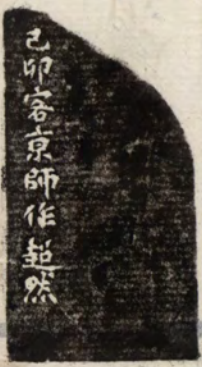 己卯客京師作超然